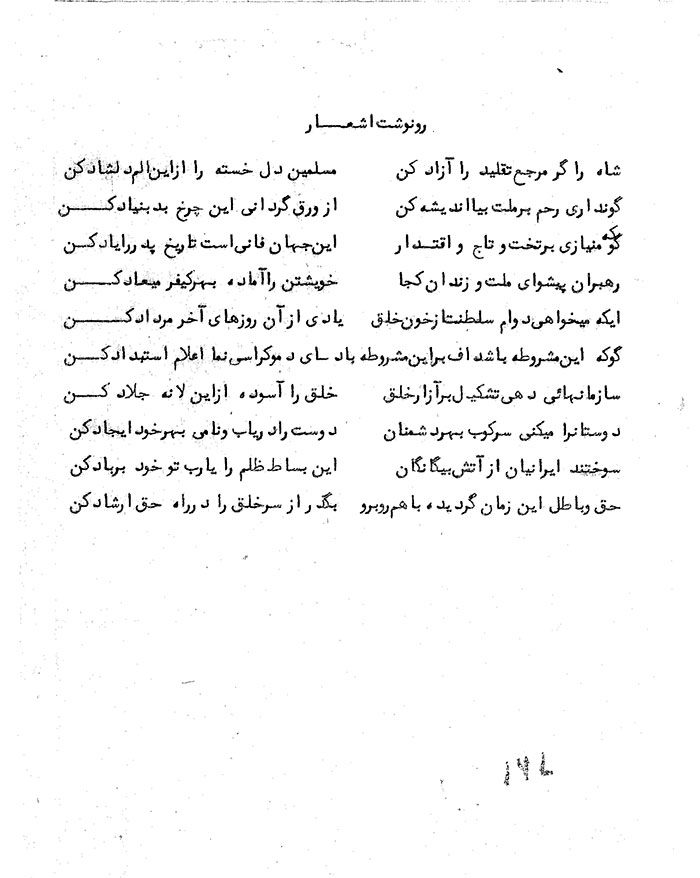 رونوشت اشعـــار
شاه را گر مرجع تقلید را آزاد کن مسلمین دل خسته را ازاین الم دلشاد کن
گونداری رحم برملت بیااندیشه کن از ورق گردانی این چرخ بد بنیاد کــــن
گو که منیازی برتخت و تاج و اقتدار این جهان فانی است تاریخ پدررایاد کــن
رهبران پیشوای ملت و زندان کجا خویشتن راآماده بهرکیفر میعاد کــــن
ایکه میخواهی دوام سلطنت ازخون خلق یادی از آن روزهای آخر مرداد کــــن
گوکه این مشروطه باشد اف براین مشروطه باد ای دموکراسی نما اعلام استبداد کــن
سازمانهائی دهی تشکیل برآزار خلق خلق را آسوده ازاین لانه جلاد کــــن
دوستانرا میکنی سرکوب بهردشمنان دوست رادریاب ونامی بهرخود ایجاد کن
سوختند ایرانیان از آتش بیگانگان این بساط ظلم را یارب تو خود برباد کن
حق وباطل این زمان گردیده باهم روبرو بگذر از سرخلق را درراه حق ارشاد کن